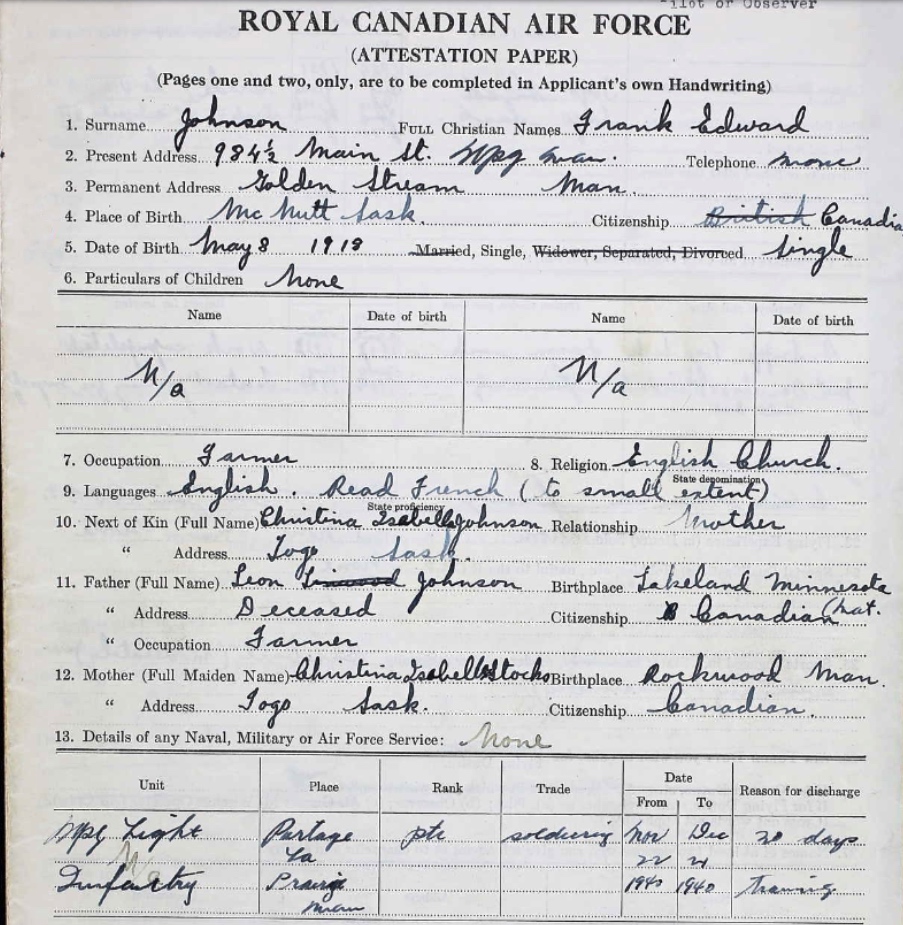 Pilot or Observer
ROYAL CANADIAN AIR FORCE
(ATTESTATION PAPER)
(Pages one and two, only, are to be completed in Applicant's own Handwriting)
1. Surname Johnson FULL Christian Names Frank Edward
2. Present Address 984½ Main St. Wpg Man. Telephone none
3. Permanent Address Golden Stream Man.
4. Place of Birth McNutt Sask. Citizenship British Canadia
5. Date of Birth May 8 1918 Married, Single, Widower, Separated, Divorced Single
6. Particulars of Children None
Name Date of birth Name Date of birth
N/a N/a
7. Occupation Farmer 8. Religion English Church.
State denomination
9. Languages English. Read French (to small extent)
State proficiency
10. Next of Kin (Full Name) Christina Isabella Johnson Relationship Mother
" Address Togo Sask.
11. Father (Full Name) Leon Johnson Birthplace Lakeland Minnesota
" Address Deceased Citizenship B Canadian (nat.
" Occupation Farmer
12. Mother (Full Maiden Name) Christina Isabella Stocks Birthplace Rockwood Man.
" Address Togo Sask. Citizenship Canadian.
13. Details of any Naval, Military or Air Force Service: None
Unit Place Rank Trade Date Reason for discharge
From To
Wpg Light Portage pte soldiering Nov Dec 30 days
N/a La 22 21
Infantry Prairie 1940 1940 Training
Man